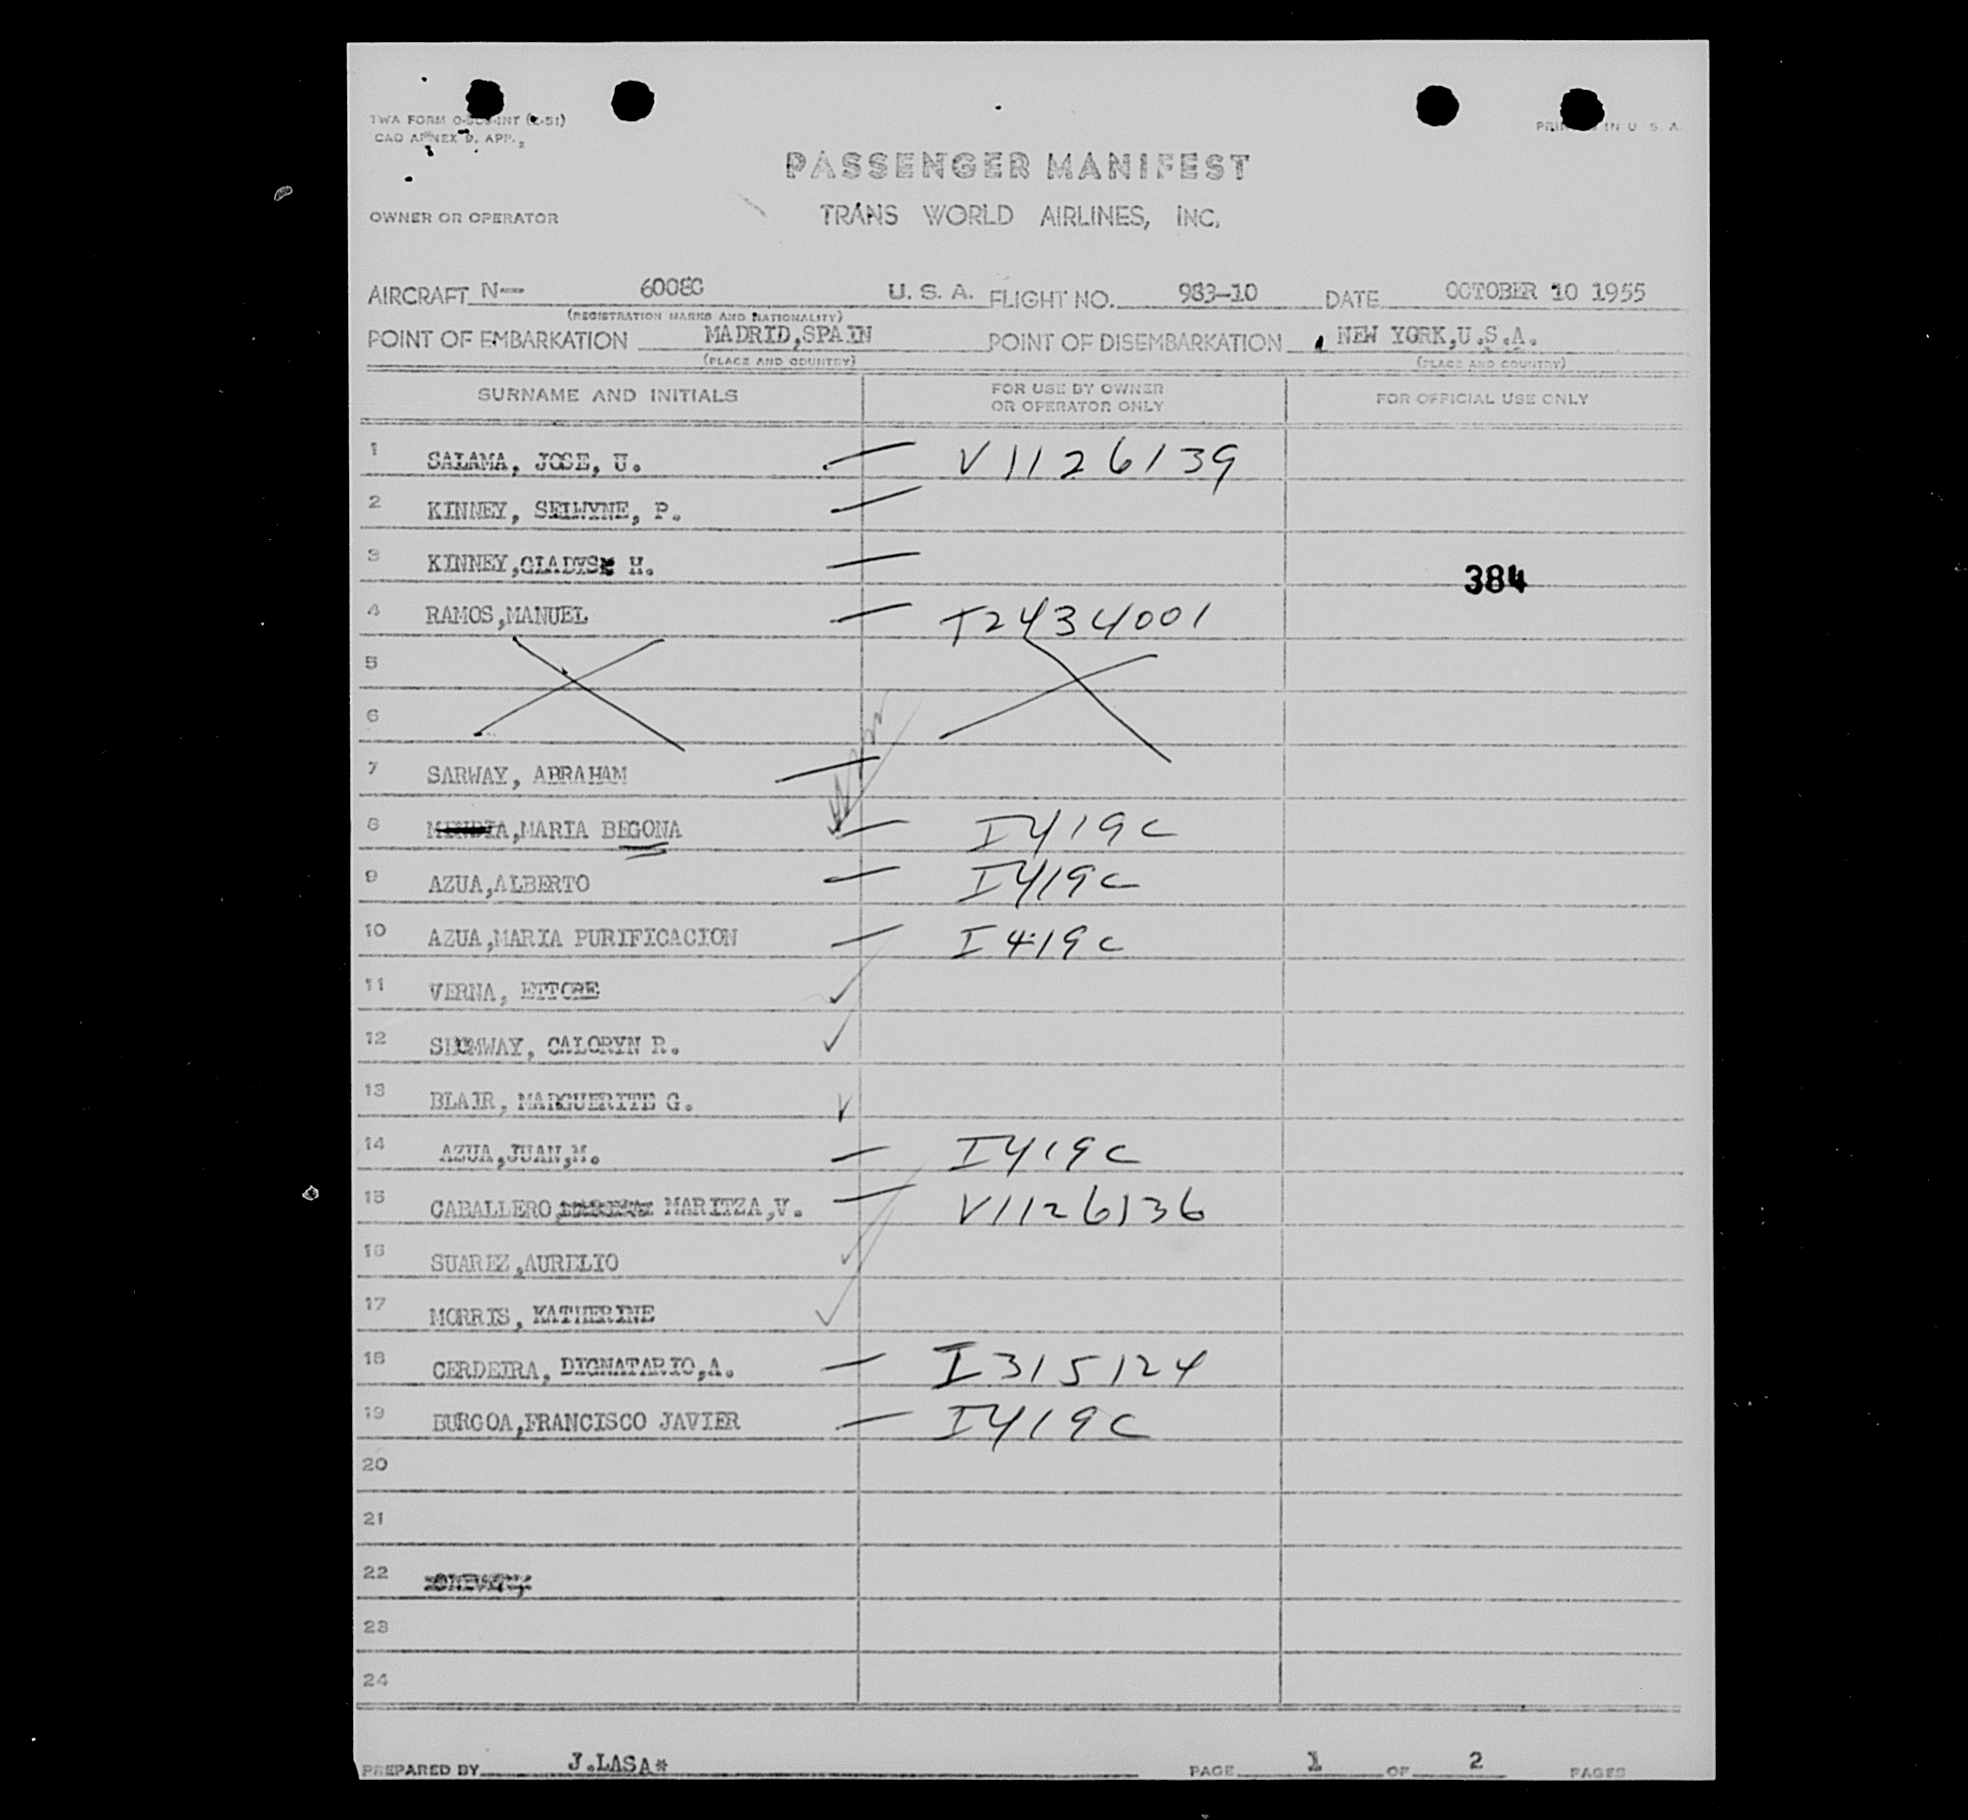 TWA FORM INT
CAO ANNEX 9, APP. 2
PRINTED IN U. S. A.
PASSENGER MANIFEST
OWNER OR OPERATOR
TRANS WORLD AIRLINES, INC.
AIRCRAFT N-- U. S. A. FLIGHT NO. 983-10 DATE OCTOBER 10 1955
(REGISTRATION MARKS AND NATIONALITY)
POINT OF EMBARKATION MADRID,SPAIN POINT OF DISEMBARKATION NEW YORK,U.S.A.
(PLACE AND COUNTRY) (PLACE AND COUNTRY)
SURNAME AND INITIALS FOR USE BY OWNER OR OPERATOR ONLY FOR OFFICIAL USE ONLY
1 SALAMA, JOSE, U. V1126139
2 KINNEY, SELWYNE, P.
3 KINNEY,GLADYS H. 384
4 RAMOS,MANUEL T2434001
5
6
7 SARWAY, ABRAHAM
8 MENDIA,MARIA BEGONA I419C
9 AZUA,ALBERTO I419C
10 AZUA,MARIA PURIFICACION I419C
11 VERNA, ETTORE
12 SHUMWAY, CALORYN R.
13 BLAIR, MARGUERITE G.
14 AZUA,JUAN,M. I419C
15 CABALLERO, MARITZA,V. V1126136
16 SUAREZ,AURELIO
17 MORRIS, KATHERINE
18 CERDEIRA, DIGNATARIO,A. I315124
19 BURGOA,FRANCISCO JAVIER I419C
20
21
22
23
24
PREPARED BY J.LASA* PAGE 1 OF 2 PAGES